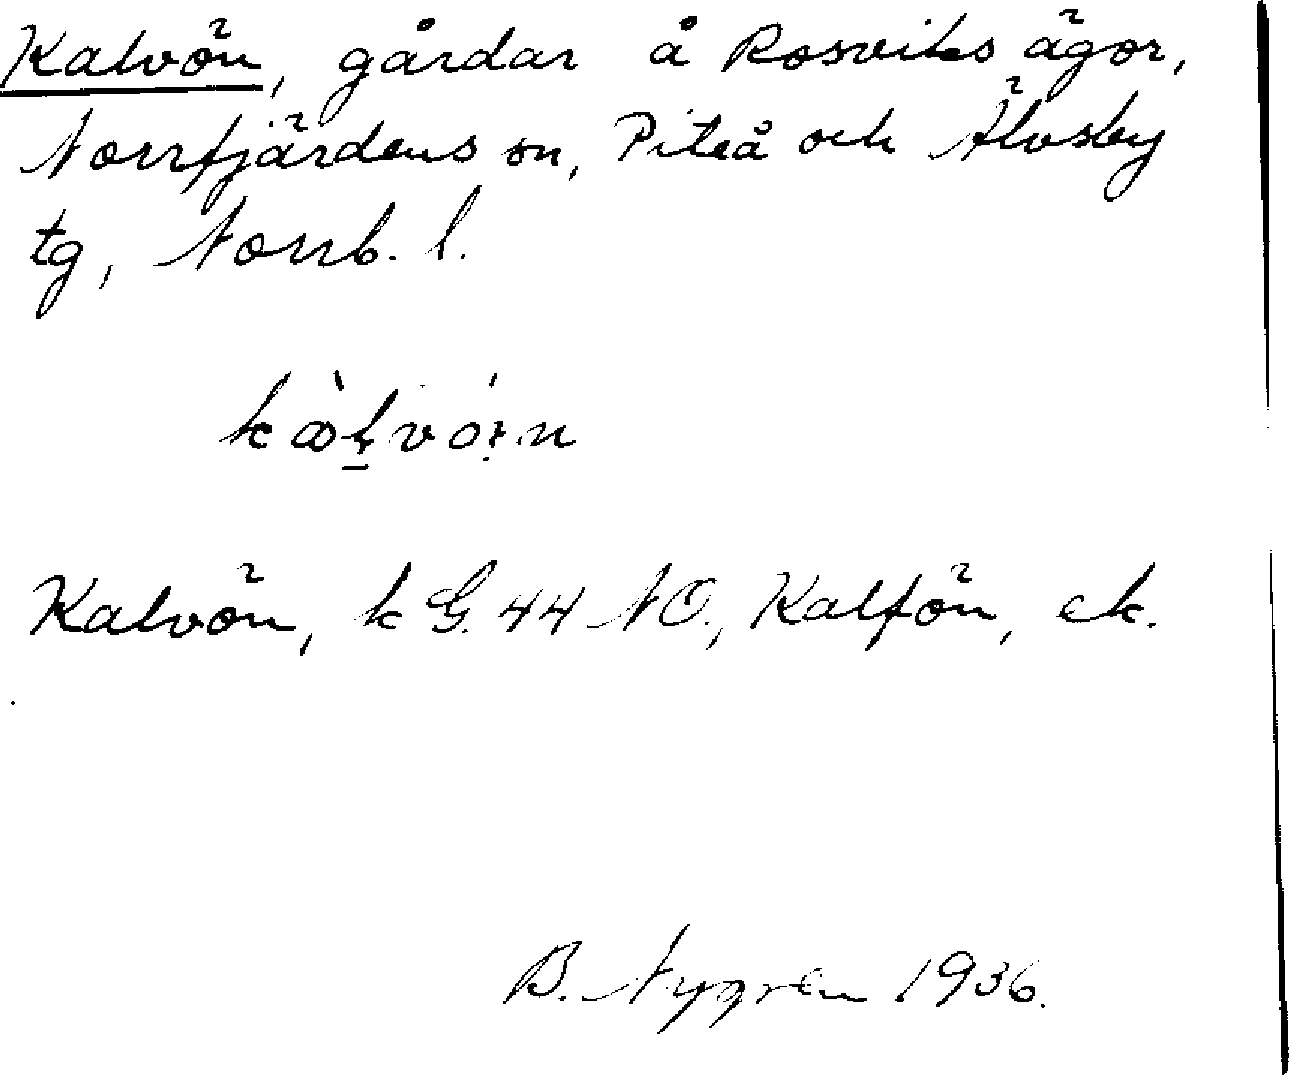 Kalvön, gårdar å Rosviks ägor,
Norrfjärdens sn, Piteå och Älvsby
tg, Norrb. l.
Kalvön, k G. 44 NO., Kalfön, ek.
B. Nygren 1936.